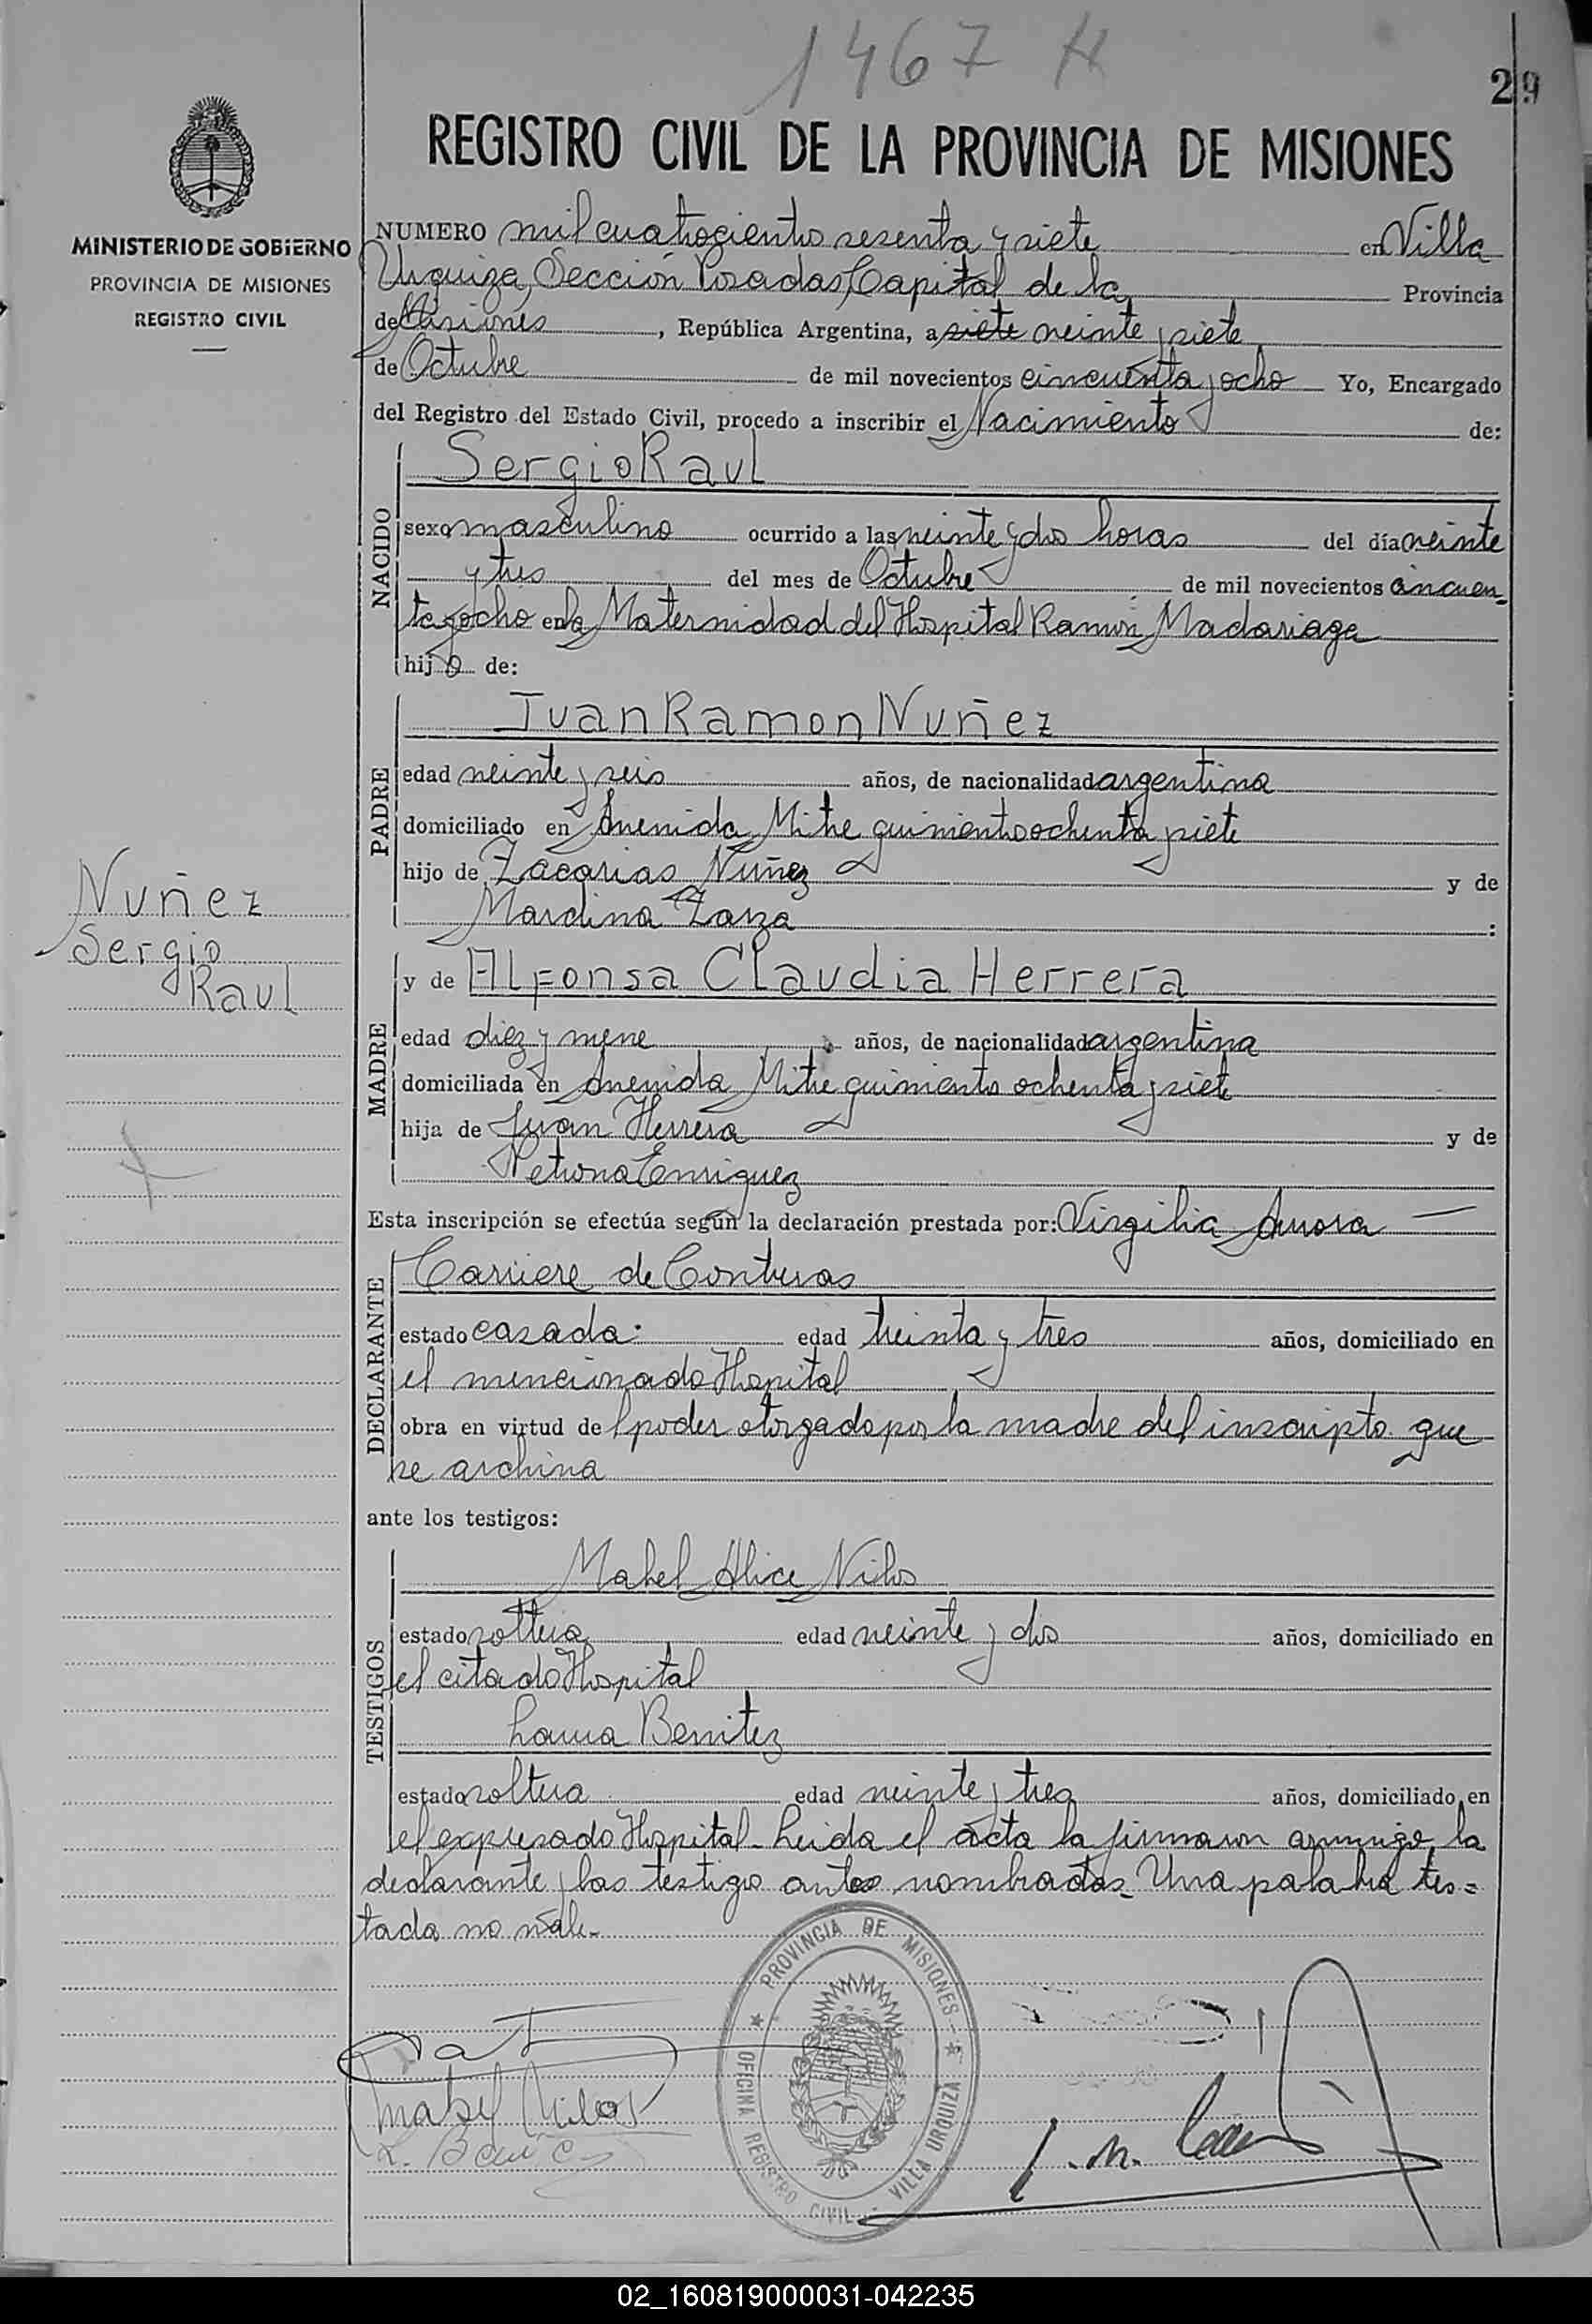 1467 H
29
MINISTERIO DE GOBIERNO
PROVINCIA DE MISIONES
REGISTRO CIVIL
REGISTRO CIVIL DE LA PROVINCIA DE MISIONES
NUMERO mil cuatrocientos sesenta y siete en Villa
Urquiza, Sección Posadas, Capital de la Provincia
de Misiones, República Argentina, a siete veinte y siete
de Octubre de mil novecientos cincuenta y ocho Yo, Encargado
del Registro del Estado Civil, procedo a inscribir el Nacimiento de:
NACIDO
Sergio Raul
sexo masculino ocurrido a las veinte y dos horas del día veinte
y tres del mes de Octubre de mil novecientos cincuen-
ta y ocho en la Maternidad del Hospital Ramón Madariaga
hijo de:
PADRE
Juan Ramon Nuñez
edad veinte y seis años, de nacionalidad argentina
domiciliado en Avenida Mitre quinientos ochenta y siete
hijo de Zacarias Nuñez y de
Marcelina Zarza :
Nuñez
Sergio
Raul
MADRE
y de Alfonsa Claudia Herrera
edad diez y nueve años, de nacionalidad argentina
domiciliada en Avenida Mitre quinientos ochenta y siete
hija de Juan Herrera y de
Petrona Enriquez
Esta inscripción se efectúa según la declaración prestada por: Virgilia
DECLARANTE
de Contreras
estado casada. edad treinta y tres años, domiciliado en
el mencionado Hospital
obra en virtud del poder otorgado por la madre del inscripto que
se archiva
ante los testigos:
TESTIGOS
Mabel Alice Vilos
estado soltera edad veinte y dos años, domiciliado en
el citado Hospital
Laura Benitez
estado soltera edad veinte y tres años, domiciliado en
el expresado Hospital - Leida el acta la firmaron conmigo, la
declarante y las testigo antes nombradas - Una palabra tes=
tada no vale.-
PROVINCIA DE MISIONES
OFICINA REGISTRO CIVIL - VILLA URQUIZA
Mabel Vilos
02_160819000031-042235